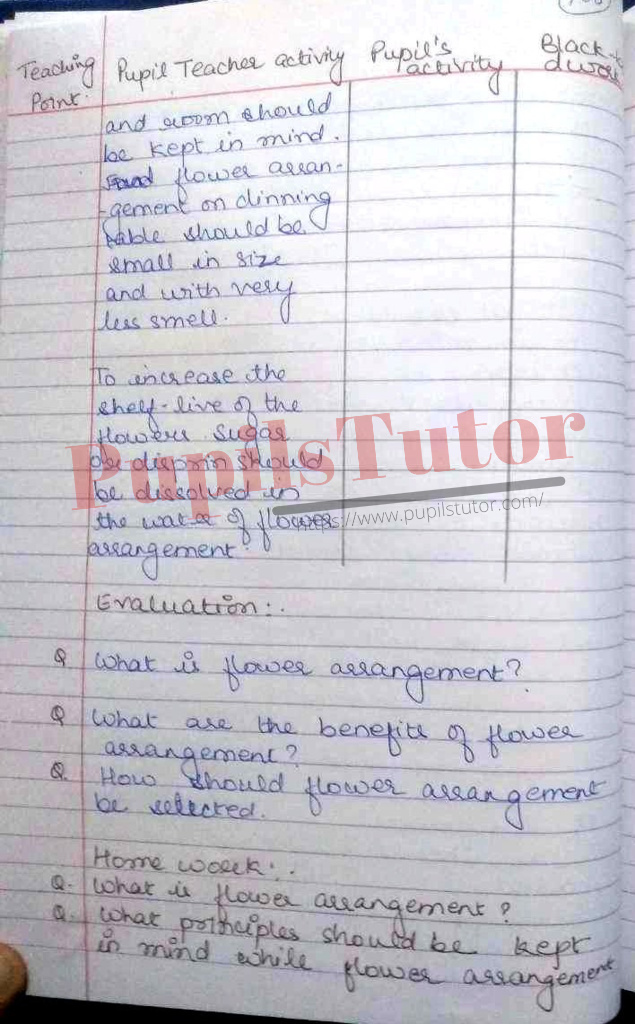 Teaching Point.
Pupil Teacher activity
Pupil's activity
Black
and room should
be kept in mind.
flower arran-
-gement on dinning
table should be
small in size
and with very
less smell.
To increase the
shelf-live of the
flowers sugar
or disprin should
be dissolved in
the water of flower
arrangement.
PupilsTutor
https://www.pupilstutor.com/
Evaluation:.
Q What is flower arrangement?
Q What are the benefits of flower
arrangement?
Q. How should flower arrangement
be selected.
Home work:.
Q. What is flower arrangement?
Q. What principles should be kept
in mind while flower arrangement